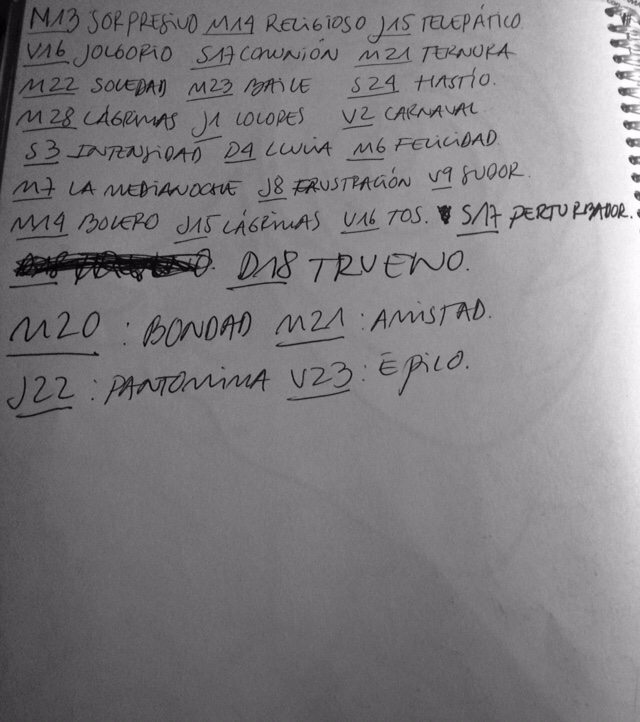 M13 SORPRESIVO M14 RELIGIOSO J15 TELEPÁTICO
V16 JOLGORIO S17 COMUNIÓN M21 TERNURA
M22 SOLEDAD M23 BAILE S24 HASTÍO.
M28 LÁGRIMAS J1 COLORES V2 CARNAVAL
S3 INTENSIDAD D4 LLUVIA M6 FELICIDAD
M7 LA MEDIANOCHE J8 FRUSTRACIÓN V9 SUDOR.
M14 BOLERO J15 LÁGRIMAS V16 TOS. S17 PERTURBADOR.
D18 TRUENO.
M20 : BONDAD M21 : AMISTAD.
J22 : PANTOMIMA V23 : ÉPICO.